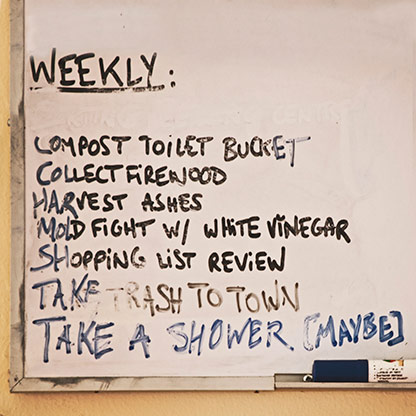 WEEKLY:
COMPOST TOILET BUCKET
COLLECT FIREWOOD
HARVEST ASHES
MOLD FIGHT W/ WHITE VINEGAR
SHOPPING LIST REVIEW
TAKE TRASH TO TOWN
TAKE A SHOWER. [MAYBE]